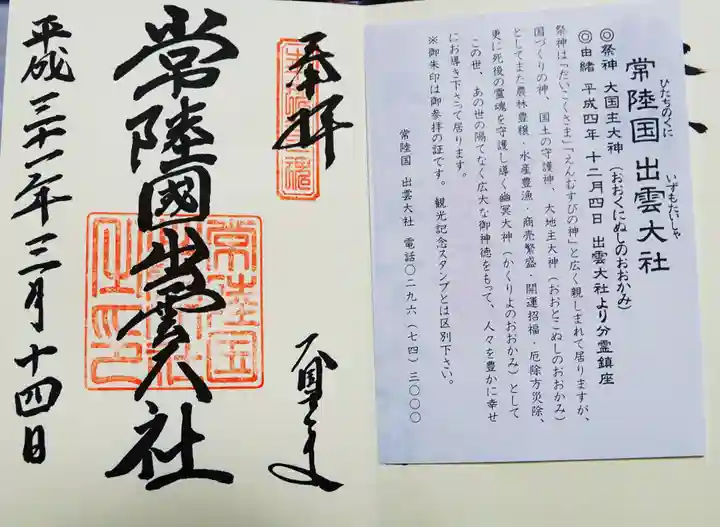 常陸国 出雲大社
ひたちのくに いずもたいしゃ
◎祭神 大国主大神(おおくにぬしのおおかみ)
◎由緒 平成四年 十二月四日 出雲大社より分霊鎮座
祭神は「だいこくさま」「えんむすびの神」と広く親しまれて居りますが、
国づくりの神、国土の守護神、大地主大神(おおとこぬしのおおかみ)
としてまた農林豊穣・水産豊漁・商売繁盛・開運招福・厄除方災除、
更に死後の霊魂を守護し導く幽冥大神(かくりよのおおかみ)として
この世、あの世の隔てなく広大な御神徳をもって、人々を豊かに幸せ
にお導き下さって居ります。
※御朱印は御参拝の証です。観光記念スタンプとは区別下さい。
常陸国 出雲大社 電話〇二九六(七四)三〇〇〇
奉拝
常陸國出雲大社
常陸国
平成三十一年三月十四日